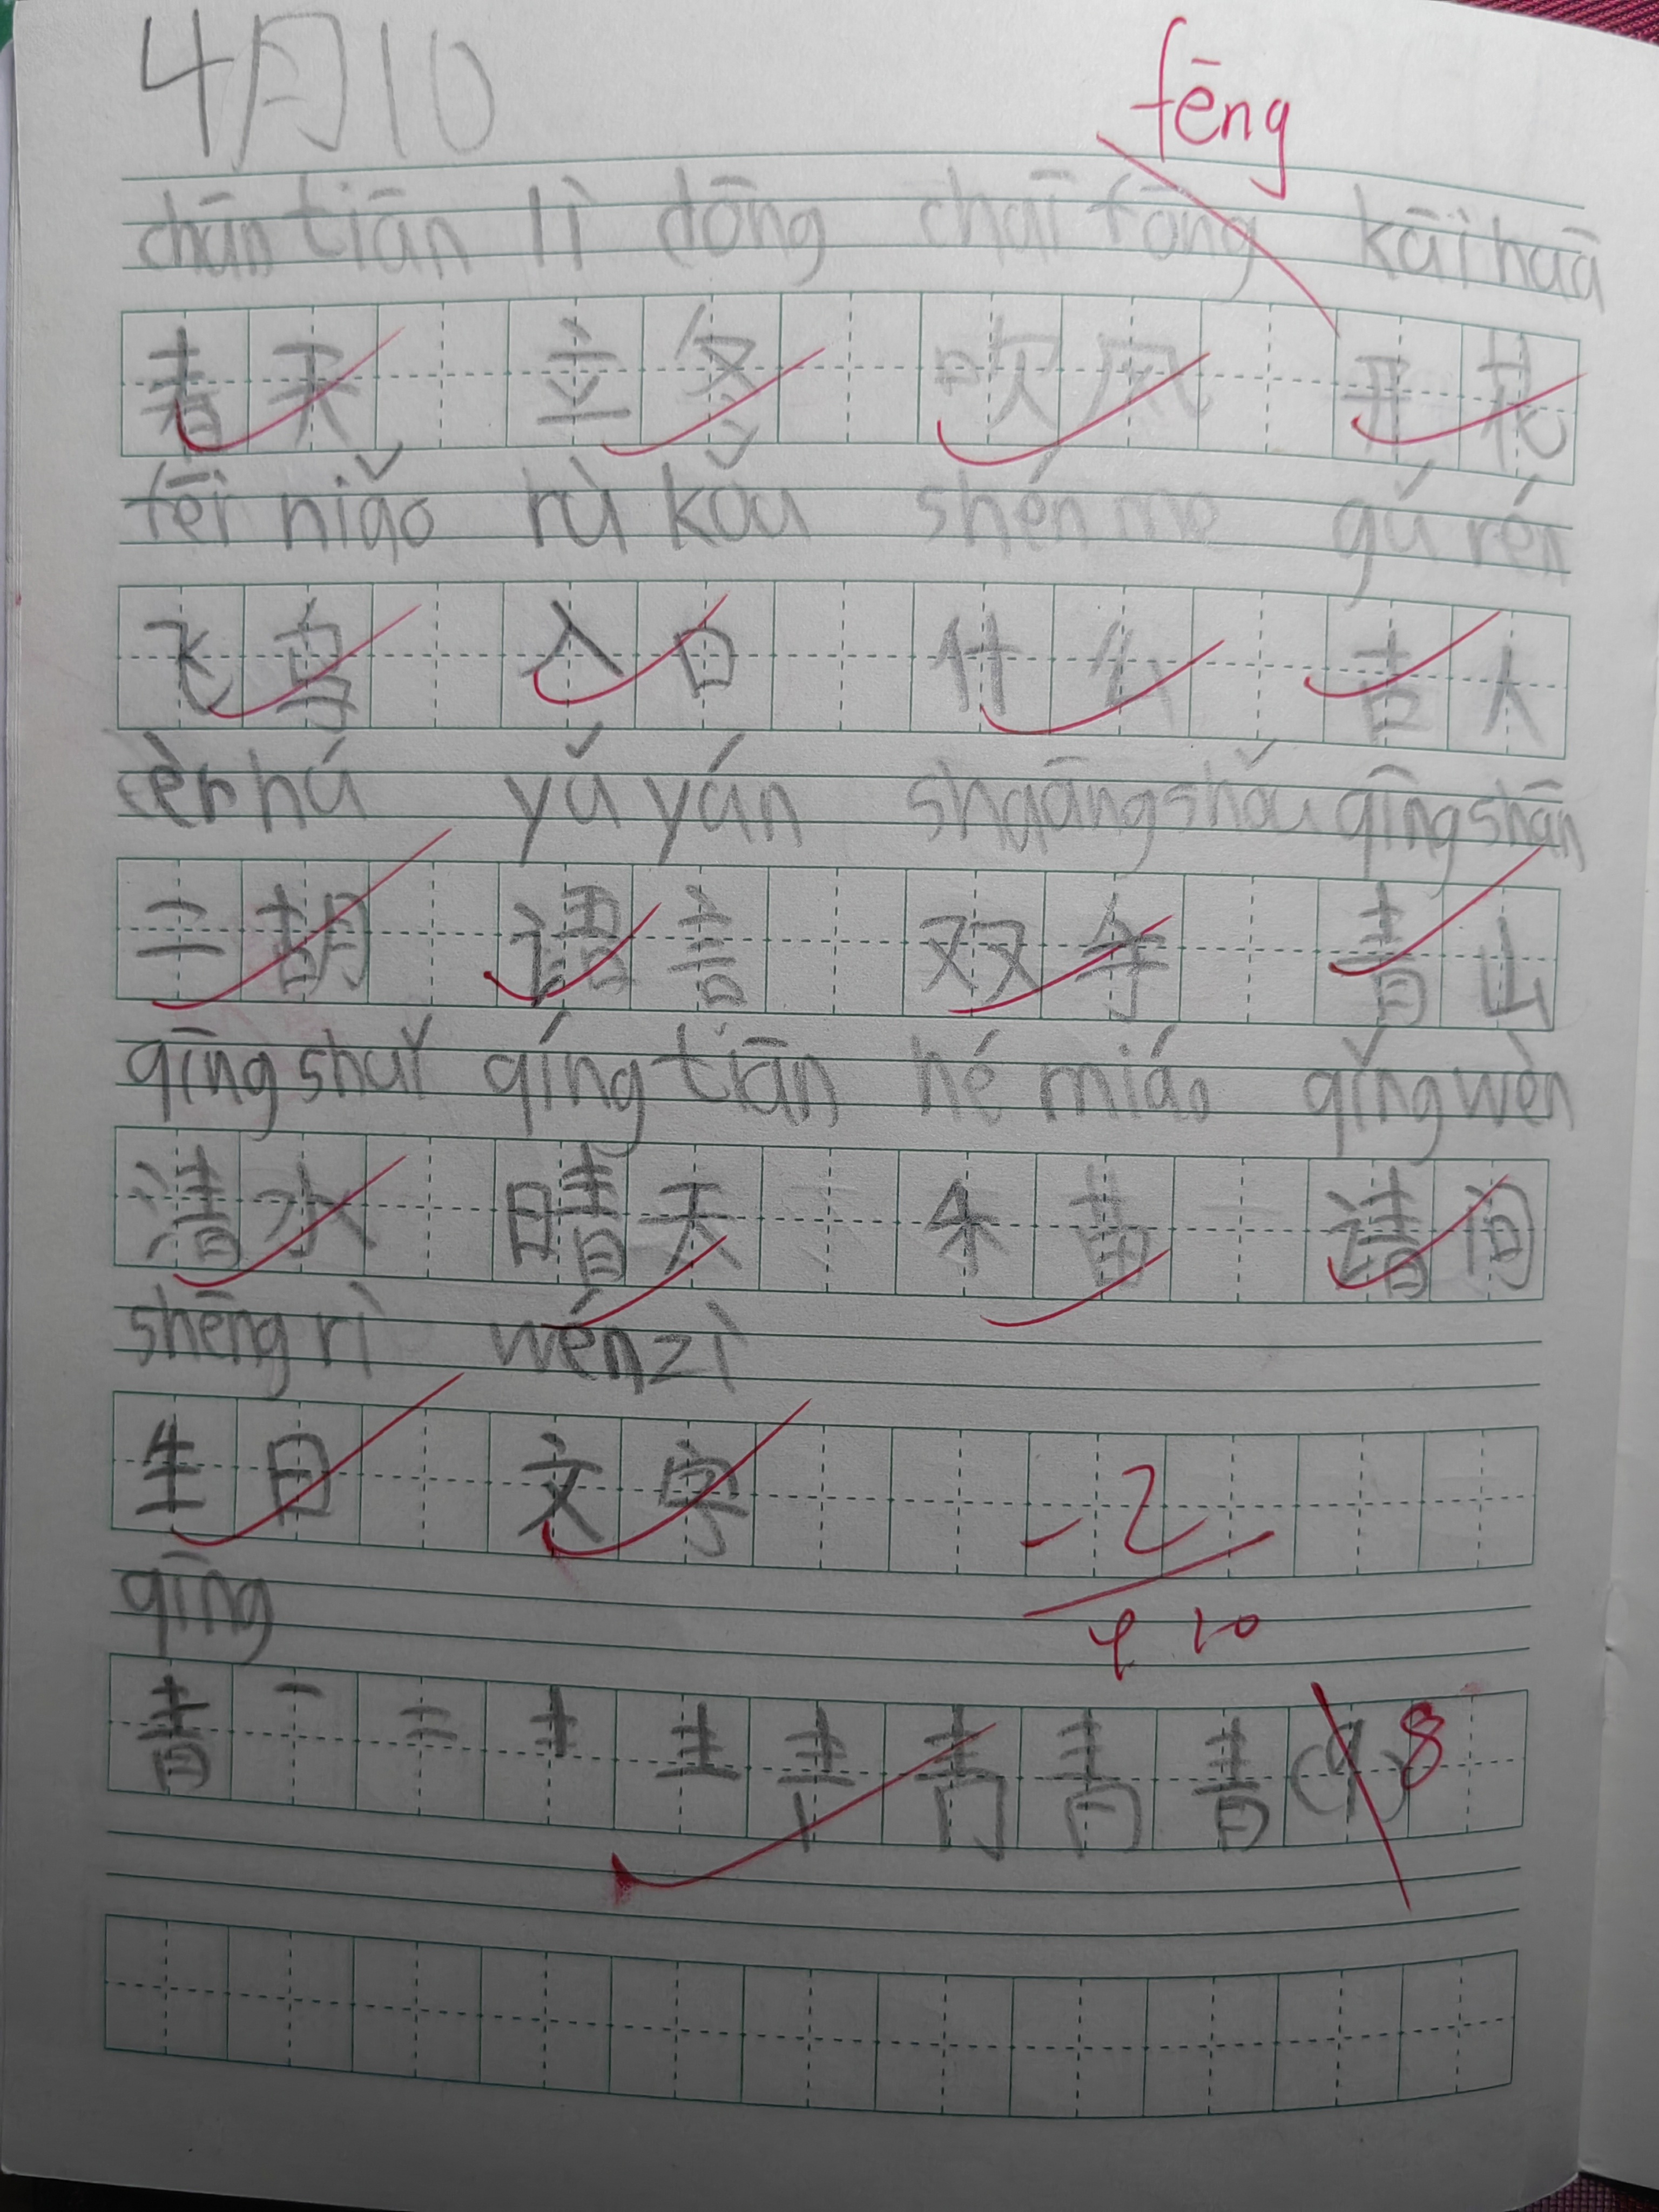 4月10
fēng
chūn tiān lì dōng chuī fōng kāi huā
春天 立冬 吹风 开花
fēi niǎo rù kǒu shén me gǔ rén
飞鸟 入口 什么 古人
èr hú yǔ yán shuāng shǒu qīng shān
二胡 语言 双手 青山
qīng shuǐ qíng tiān hé miáo qǐng wèn
清水 晴天 禾苗 请问
shēng rì wén zì
生日 文字
-2
4 10
qīng
青 一 二 龶 青 (9) 8